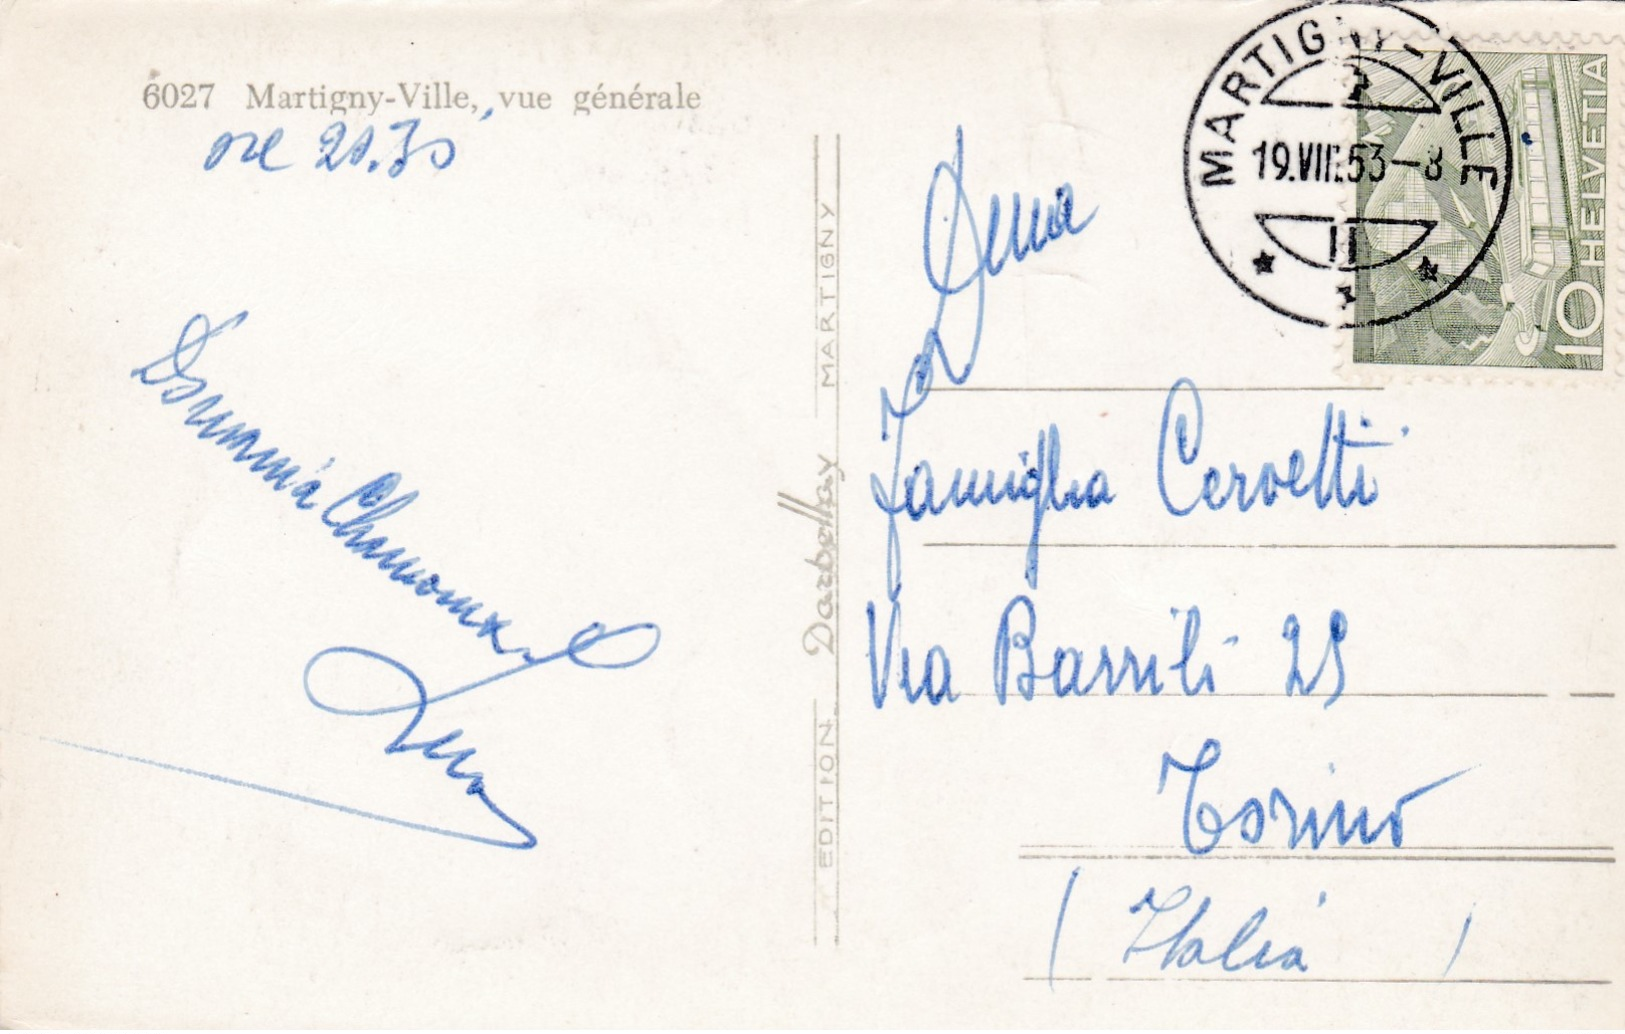 6027 Martigny-Ville, vue générale
ore 21.30
Domani Chamonix.
EDITION Darbellay MARTIGNY
MARTIGNY-VILLE
19.VIII.53-8
HELVETIA
10
Famiglia Cervetti
Via Barrili 29
Torino
(Italia)